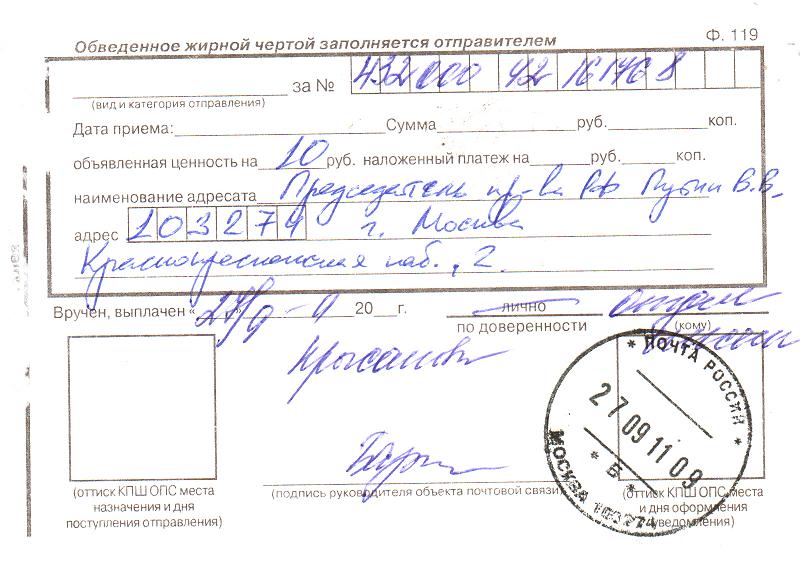 Обведенное жирной чертой заполняется отправителем Ф. 119
за № 432000 42 16176 8
(вид и категория отправления)
Дата приема: Сумма руб. коп.
объявленная ценность на 10 руб. наложенный платеж на руб. коп.
наименование адресата Председатель пр-ва РФ Путин В.В.
адрес 103274 г. Москва
Краснопресненская наб., 2.
Вручен, выплачен « » 20 г. лично
по доверенности (кому)
* ПОЧТА РОССИИ *
27 09 11 09
* Б *
МОСКВА 103274
(оттиск КПШ ОПС места
назначения и дня
поступления отправления)
(подпись руководителя объекта почтовой связи)
(оттиск КПШ ОПС места
и дня оформления
уведомления)